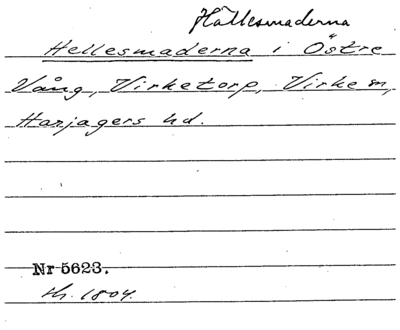 Hällesmaderna
Hellesmaderna i Östre
Vång, Virketorp, Virke sn,
Harjagers hd.
Nr 5623.
th. 1804.